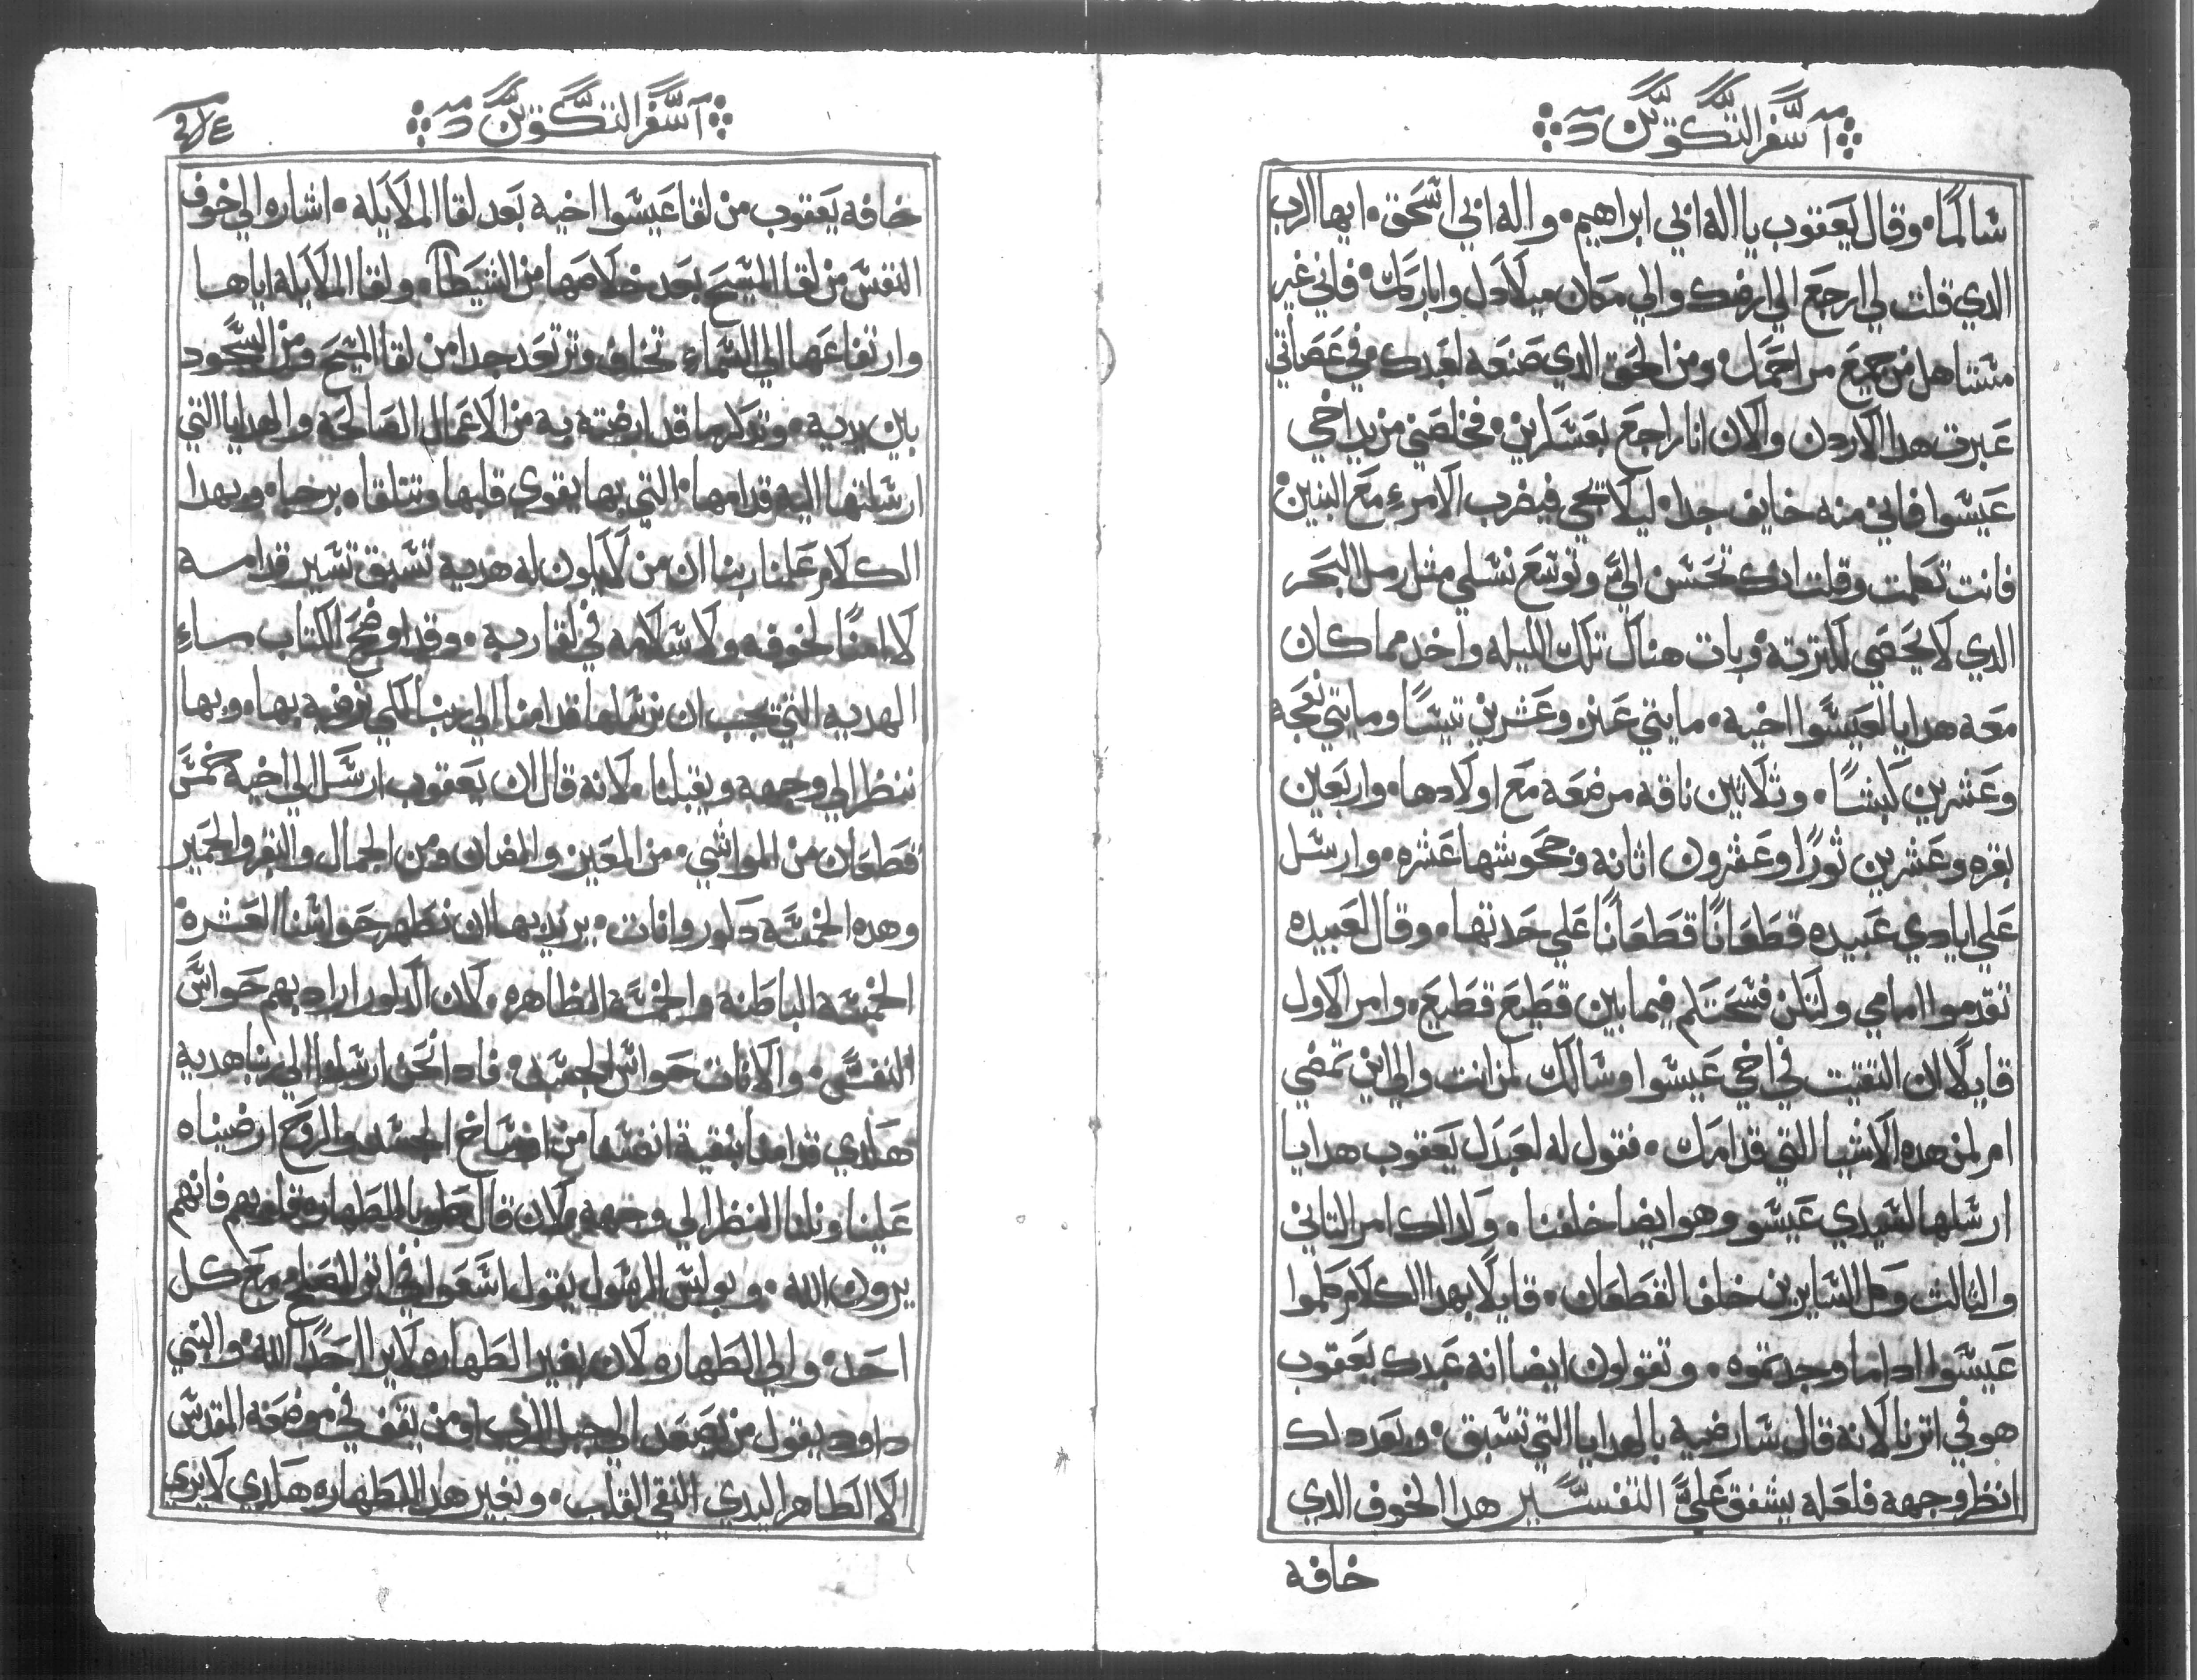 اسفر التكوين
سالمًا ۰ وقال يعقوب يا اله ابي ابراهيم ۰ واله ابي اسحق ۰ ايها الرب
الدي قلت لي ارجع الي ارضك والي مكان ميلادك وابارك ۰ فاني غير
مستاهل من جميع مراحمك ۰ ومن الحق الدي صنعه لعبدك في عصاتي
عبرت هدا الاردن والان انا راجع بعسكرين ۰ فخلصني من يد اخي
عيسوا فاني منه خايف جدا ۰ ليلا يجي فيضرب الامرء مع البنين ۰
فانت تكلمت وقلت انك تحسن اليَّ وتوسع نسلي مثل رمل البحر
الدي لا يحصي لكترته ۰ وبات هناك تلك الليله واخد مما كان
معه هدايا لعيسوا اخيه ۰ مايتي عنز وعشرين تيسًا ومايتي نعجه
وعشرين كبشًا ۰ وثلاثين ناقه مرضعه مع اولادها ۰ واربعين
بقره وعشرين ثورًا وعشرون اتانه وجحوشها عشره ۰ وارسل
علي ايادي عبيده قطعانًا قطعانًا علي حدتها ۰ وقال لعبيده
تقدموا امامي ولتكن فسحتكم فيما بين قطيع قطيع ۰ وامر الاول
قايلًا ان التقيت في اخي عيسوا وسالك لمن انت والي اين تمضي
ام لمن هده الاشيا التي قدامك ۰ فقول له لعبدك يعقوب هدايا
ارسلها لسيدي عيسو وهو ايضا خلفنا ۰ وكدالك امر التاني
والتالت وكل السايرين خلف القطعان ۰ قايلًا بهدا الكلام كلموا
عيسوا ادا ما وجدتموه ۰ وتقولون ايضا انه عبدك يعقوب
هو في اترنا لانه قال سارضيه بالهدايا التي تسبق ۰ وبعد دلك
انظر وجهه فلعله يشفق عليَّ التفسير هدا الخوف الدي
خافه
اسفر التكوين
خافه يعقوب من لقا عيسوا اخيه بعد لقا الملايكه ۰ اشاره الي خوف
النفس من لقا المسيح بعد خلاصها من الشيطان ۰ ولقا الملايكه اياها
وارتفاعها الي السماء تخاف وترتعد جدا من لقا المسيح ومن السجود
بين يديه ۰ وتدكر ما قد ارضته به من الاعمال الصالحه والهدايا التي
ارسلتها اليه قدامها ۰ التي بها يقوي قلبها وتتلقاه برجاه ۰ وبهدا
الكلام علمنا ربنا ان من لا يكون له هديه تسبق تسير قدامه
لا امنًا لخوفه ولا سلامه في لقا ربه ۰ وقد اوضح الكتاب ساء
الهديه التي يجب ان نرسلها قدامنا الي ربنا لكي نرضيه بها ۰ وبها
ننظر الي وجهه ويقبلنا ۰ لانه قال ان يعقوب ارسل الي اخيه خمس
قطعان من المواشي ۰ من المعيز ۰ والضان ومن الجمال والبقر والحمير
وهده الخمسه دكور وانات ۰ يريد بها ان نطهر حواسنا العشره
الخمسه الباطنه والخمسه الظاهره ۰ لان الدكور اراد بهم حواس
النفس ۰ والانات حواس الجسد ۰ فادا نحن ارسلنا الي ربنا هديه
هكدي قدامنا بنقية انفسنا من اوساخ الجسد والروح ارضيناه
علينا ونلنا النظر الي وجهه لان قال طوبا للطهاره قلوبهم فانهم
يرون الله ۰ وبولس الرسول يقول اسعوا في اتر الصلح مع كل
احد ۰ والي الطهاره لان بغير الطهاره لا يرا احدًا الله ۰ والنبي
داود يقول من يصعد الي جبل الرب او من يقف في موضعه المقدس
الا الطاهر اليدي النقي القلب ۰ وبغير هده الطهاره هكدي لا نري